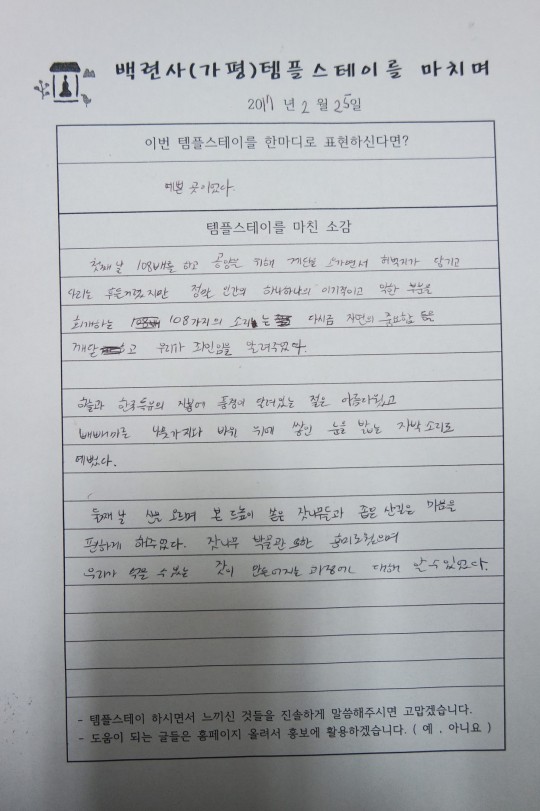 백련사(가평)템플스테이를 마치며
2017 년 2 월 25일
이번 템플스테이를 한마디로 표현하신다면?
예쁜 곳이었다.
템플스테이를 마친 소감
첫째날 108배를 하고 공양을 위해 계단을 허벅지가 당기고
다리는 후들거렸지만 정말 인간의 하나하나의 이기적이고 악한 부분을
회개하는 108가지의 소리는 다시금 자연의 중요함 등을
깨닫고 우리가 죄인임을 알려주었다.
하늘과 한국특유의 지붕에 풍경이 달려있는 절은 아름다웠고
빼빼마른 나뭇가지와 바위 위에 쌓인 눈을 밟는 자박 소리도
예뻤다.
둘째 날 산을 오르며 본 드높이 솟은 잣나무들과 좁은 산길은 마음을
편하게 해주었다. 잣나무 박물관 또한 흥미로웠으며
우리가 먹을 수 있는 잣이 만들어지는 과정에 대해 알 수 있었다.
- 템플스테이 하시면서 느끼신 것들을 진솔하게 말씀해주시면 고맙겠습니다.
- 도움이 되는 글들은 홈페이지 올려서 홍보에 활용하겠습니다. ( 예 , 아니요 )